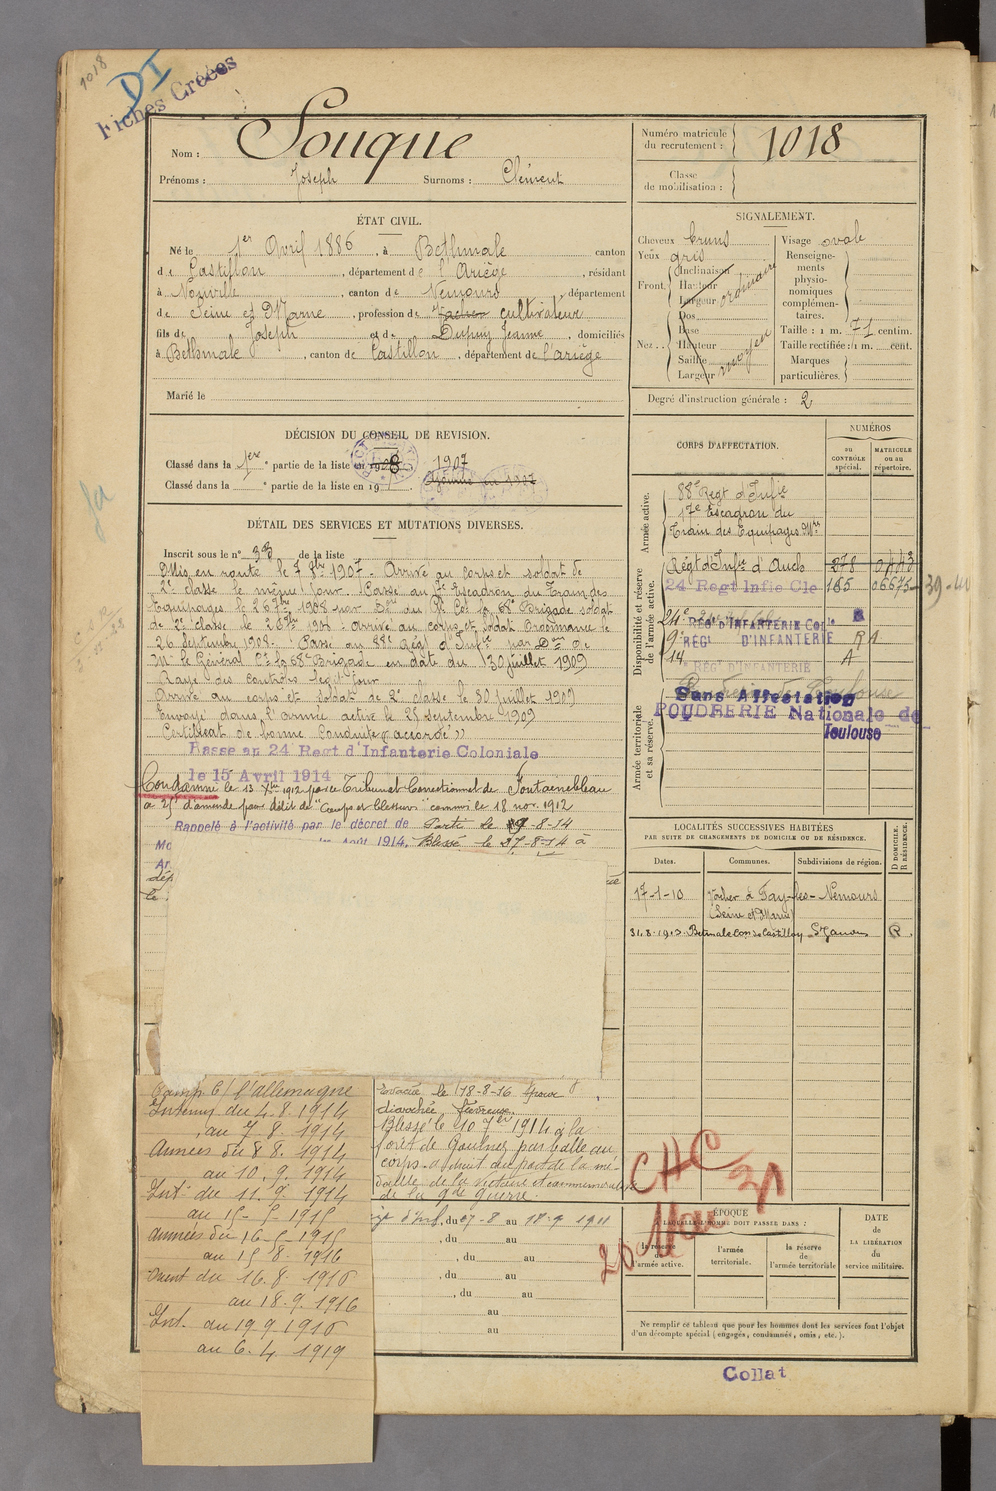 1018
DI
Fiches Créées
Nom : Souque
Prénoms : Joseph Surnoms : Clément
Numéro matricule du recrutement : 1018
Classe de mobilisation :
ÉTAT CIVIL.
Né le 1er Avril 1886, à Bethmale canton
de Castillon, département de l'Ariège, résidant
à Nonville, canton de Nemours, département
de Seine et Marne, profession de Vacher cultivateur
fils de Joseph et de Dupuy Jeanne, domiciliés
à Bethmale, canton de Castillon, département de l'ariège
Marié le
SIGNALEMENT.
Cheveux bruns
Yeux gris
Front. Inclinaison
Hauteur
Largeur
ordinaire
Nez.. Dos
Base
Hauteur
Saillie
Largeur
moyen
Visage ovale
Renseignements physionomiques complémentaires.
Taille : 1 m. 71 centim.
Taille rectifiée : 1 m. cent.
Marques particulières.
Degré d'instruction générale : 2
DÉCISION DU CONSEIL DE REVISION.
Classé dans la 1ere partie de la liste de 1908 1907
Classé dans la partie de la liste en 19 Ajourné en 1907
DÉTAIL DES SERVICES ET MUTATIONS DIVERSES.
Inscrit sous le n° 33 de la liste
Mis en route le 7 8bre 1907. Arrivé au corps et soldat de
2e classe le même jour. Passé au 17e Escadron du Train des
Equipages le
de 2e classe le
26 Septembre 1908. Passé au 88e Régt d'Infie par Don de
Mr le Général Ct la 68e Brigade en date du 30 juillet 1909
Rayé des contrôles le dit jour
Arrivé au corps et soldat de 2e classe le 30 Juillet 1909
Envoyé dans l'armée active le 25 septembre 1909
Certificat de bonne Conduite "accordé"
Passé au 24 Regt d'Infanterie Coloniale
le 15 Avril 1914
Condamné le 13 Xbre 1912 par le Tribunal Correctionnel de Fontainebleau
à 25f d'amende pour délit de "Coups et blessures" commis le 18 nov. 1912
Rappelé à l'activité par le décret de Parti le 9-8-14
Août 1914. Blessé le 27-8-14 à
CORPS D'AFFECTATION.
NUMÉROS
DU CONTRÔLE spécial.
MATRICULE OU AU répertoire.
Armée active.
88e Régt d'Infie
17e Escadron du
Train des Equipages Mre
Disponibilité et réserve de l'armée active.
Régt d'Infie d'Auch 378
24 Regt Infie Cle 185 06675
24e RÉG D'INFANTERIE Cole
9e RÉGt D'INFANTERIE R A
14 RÉGt D'INFANTERIE A
Armée territoriale et sa réserve.
Sans Affectation
POUDRERIE Nationale de
Toulouse
LOCALITÉS SUCCESSIVES HABITÉES
PAR SUITE DE CHANGEMENTS DE DOMICILE OU DE RÉSIDENCE.
Dates. Communes. Subdivisions de région. D DOMICILE. R RÉSIDENCE.
17-1-10 Vacher à Fay-les-Nemours
(Seine et Marne)
31.8.1913. Betmale Con de Castillon St Gaudens R.
Camp. C/ l'allemagne
Intérieur du 4.8.1914
au 7.8.1914
Armées du 8 8.1914
au 10.9.1914
Int. du 11.9.1914
au 15-5-1915
armées du 16-5-1915
au 15 8-1916
Orient du 16.8.1916
au 18.9.1916
Int. du 19 9 1916
au 6.4 1919
Evacué le 18-8-16 pour
diarrhée fiévreuse.
Blessé le 10 7bre 1914 à la
forêt de Goulner par balle au
corps. a droit au port de la mé-
daille de la Victoire et commémorative
de la gde guerre.
d'Inf, du 07-8 au 18-9 1911
, du au
, du au
, du au
, du au
au
au
CHC
ÉPOQUE
À LAQUELLE L'HOMME DOIT PASSER DANS :
la réserve de l'armée active.
l'armée territoriale.
la réserve de l'armée territoriale
DATE de LA LIBÉRATION du service militaire.
Ne remplir ce tableau que pour les hommes dont les services font l'objet
d'un décompte spécial (engagés, condamnés, omis, etc.).
Collat